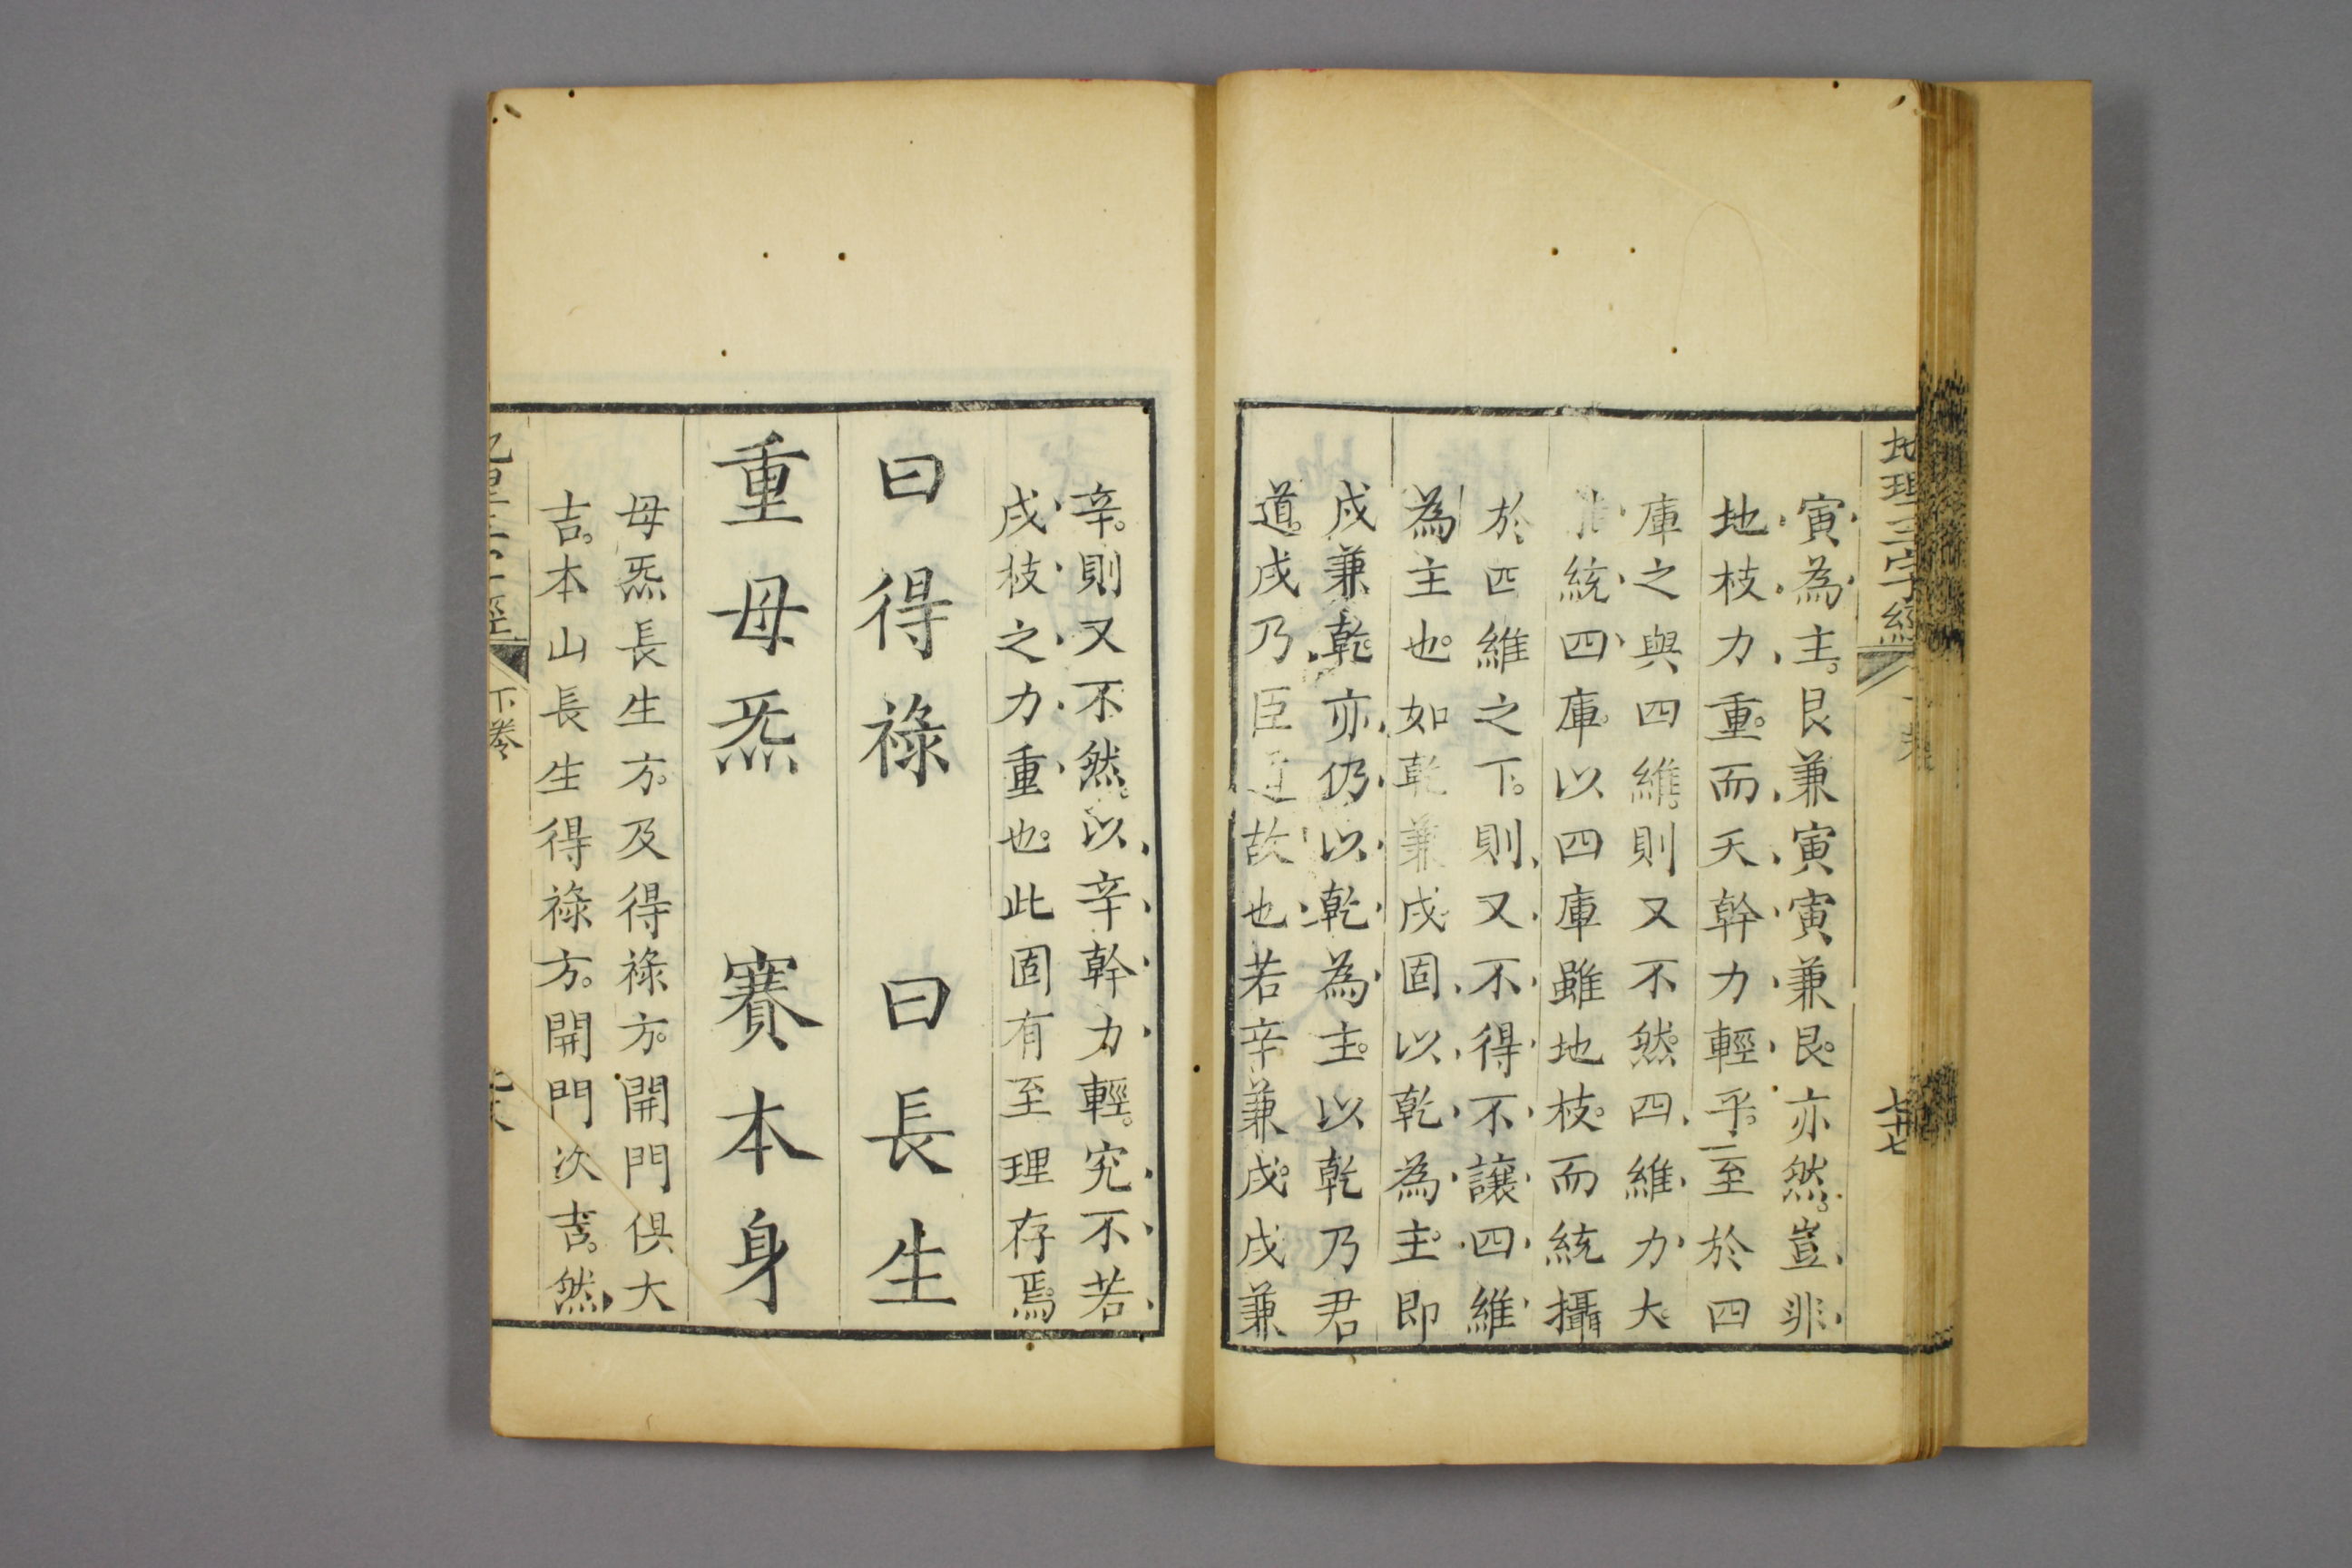 地理三字經
七十七
寅為主。艮兼寅寅兼艮。亦然。豈非
地枝力重。而天幹力輕乎。至於四
庫之與四維。則又不然。四維力大
統四庫。以四庫雖地枝。而統攝
於四維之下。則又不得不讓四維
為主也。如乾兼戌固以乾為主。即
戌兼乾。亦仍以乾為主。以乾乃君
道。戌乃臣道故也若辛兼戌。戌兼
辛。則又不然。以辛幹力輕。究不若
戌枝之力重也。此固有至理存焉。
曰得祿 曰長生
重母炁 賽本身
母炁長生方。及得祿方。開門俱大
吉。本山長生得祿方。開門次吉。然
下卷